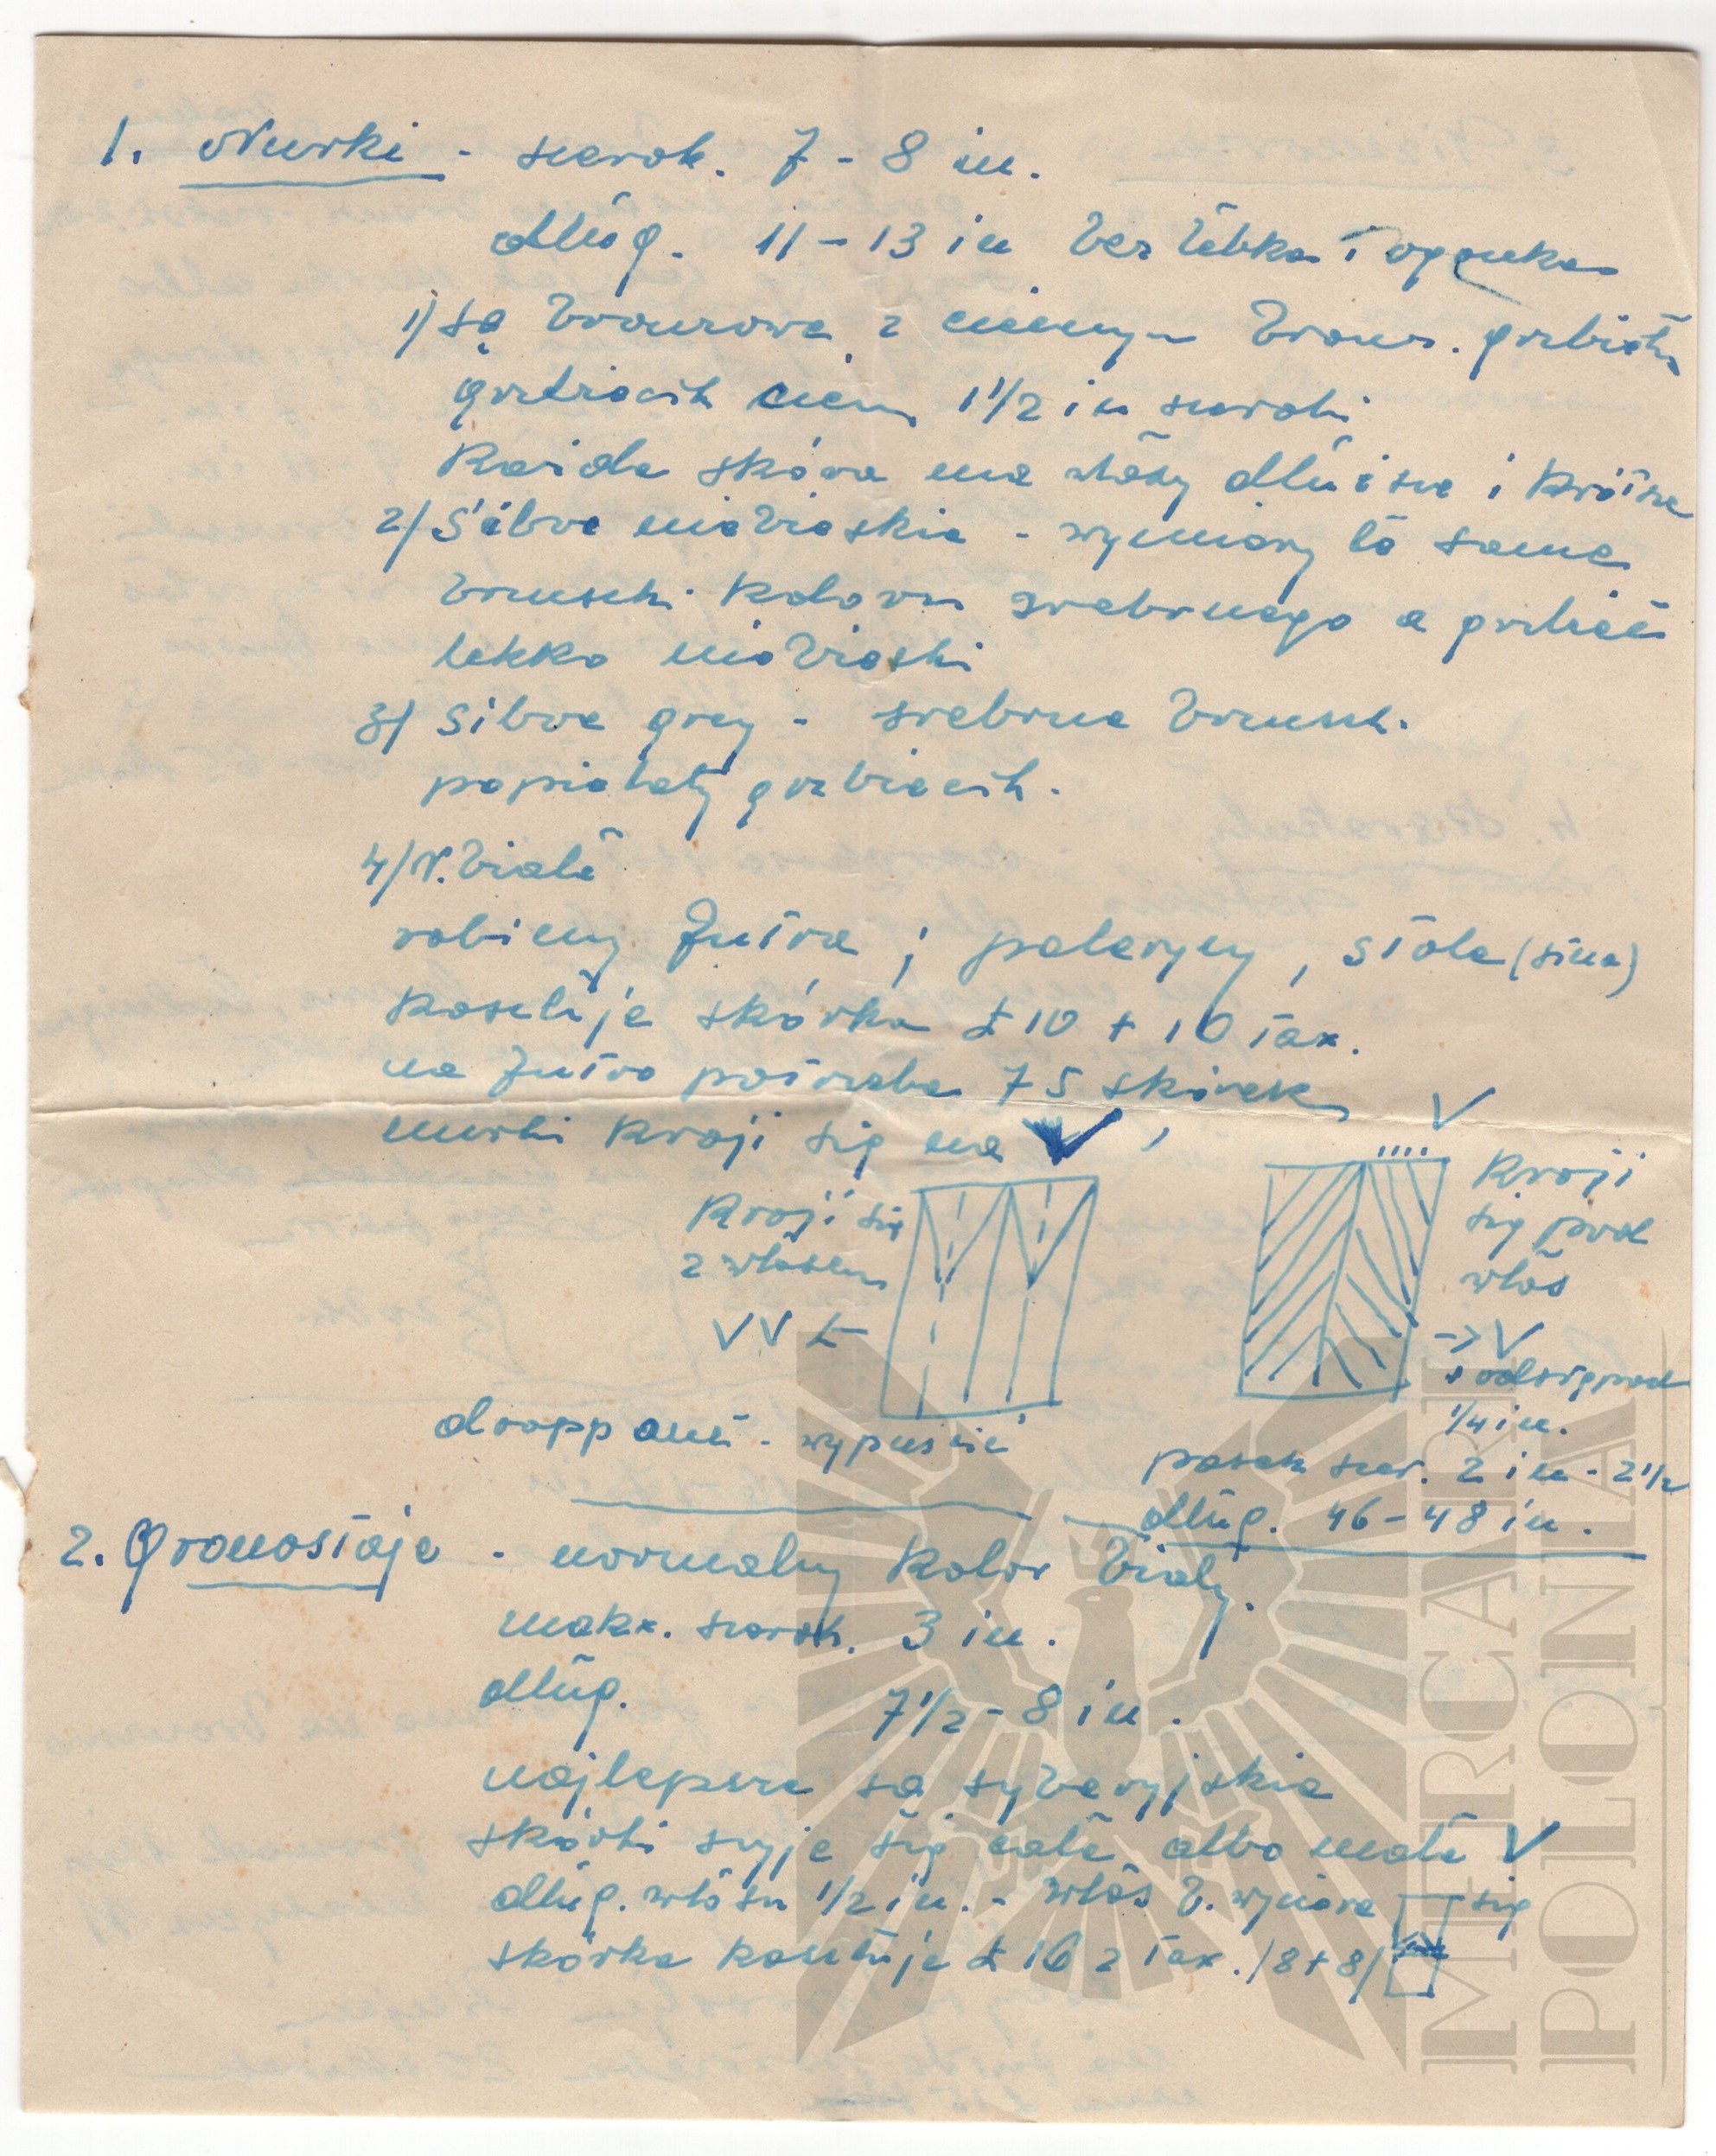 1. Nurki - szerok. 7 - 8 in.
dług. 11 - 13 in bez łebka i ogonka
1) są bronzowe z ciemnym bronz. grzbietem
grzbiecik ciem. 1 1/2 in szeroki
Każda skóra ma włosy dłuższe i krótsze
2) Silbra niebieskie - wymiary te same
brzuch. koloru srebrnego a grzbiet
lekko niebieski
3) Silbra grey - srebrne brzuch.
popielaty grzbiecik.
4) N. białe
robimy futra, peleryny, stole (sina)
kosztuje skórka £ 10 + 10 tax.
na futro potrzeba 75 skórek
nurki kroji się na V,
V
kroji się
z włosem
V V
kroji
się pod
włos
-> V
1/4 in.
dropp ant - wypuścić
pasek szer. 2 in - 2 1/2
dług. 46 - 48 in.
2. Gronostaje - normalny kolor biały.
makx. szerok. 3 in.
dług. 7 1/2 - 8 in.
najlepsze są syberyjskie
skórki szyje się całe albo małe V
dług. włosu 1/2 in. - włos b. się
skórka kosztuje £ 16 z tax. /8+8/
MERCARI
POLONIA